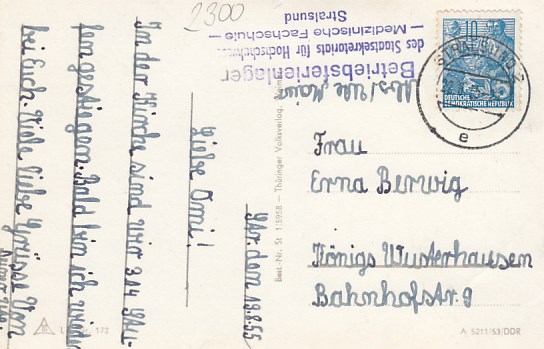 2300
Betriebsferienlager
des Staatsekretariats für Hochschulwesen
— Medizinische Fachschule —
Stralsund
10
DEUTSCHE
DEMOKRATISCHE REPUBLIK
STRALSUND
e
Frau
Erna Berwig
Königs Wusterhausen
Bahnhofstr. 9
den 19.8.55
Liebe Omi!
In der Kirche sind wir 314 Stu-
fen gestiegen. Bald bin ich wieder
bei Euch. Viele liebe Grüsse von
Best.-Nr. St 1/5958 — Thüringer Volksverlag,
172
A 5211/53/DDR